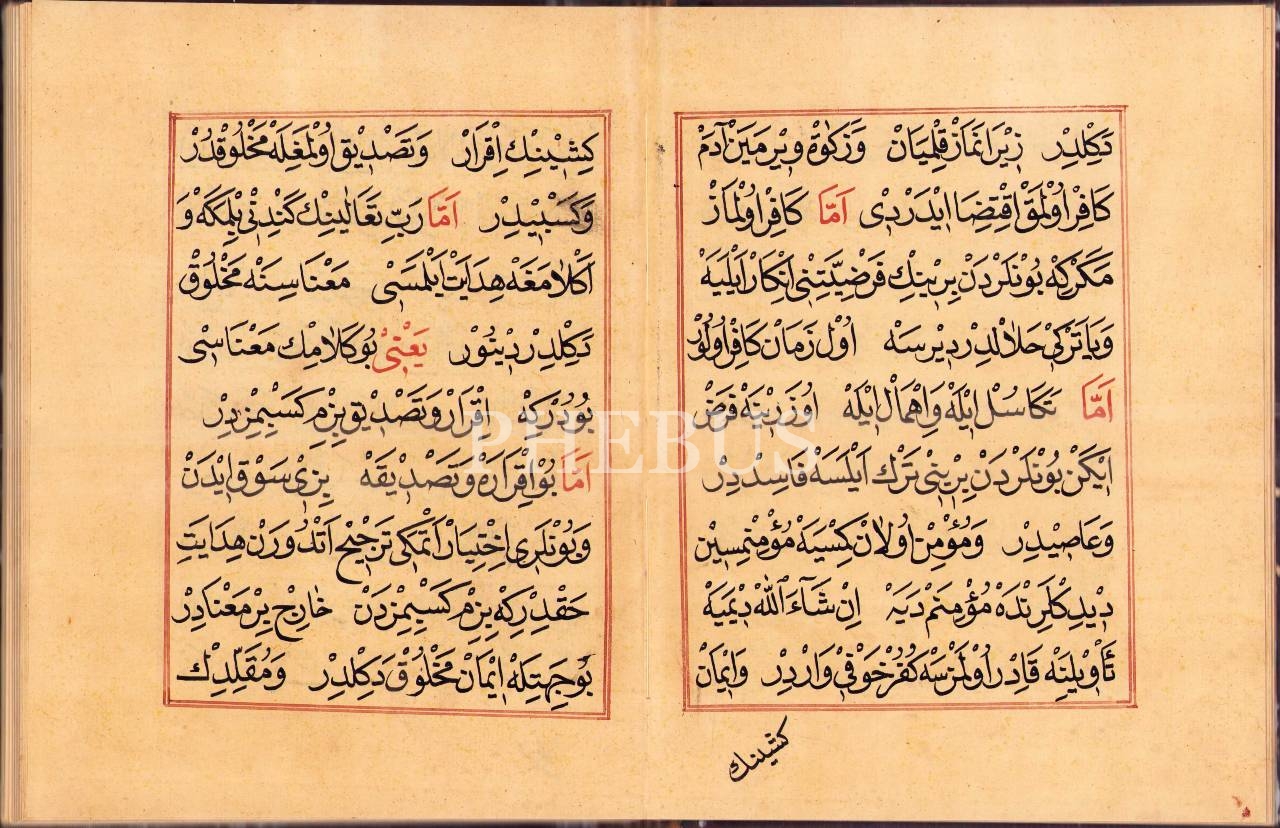 دَكِلْدِرْ زِيْرَا نَمَازْ قِلْمَيَانْ وَزَكٰوةْ وِيْرْمَيَنْ آدَمْ
كَافِرْ اُولْمَقْ اِقْتِضَا اِيْدَرْدِى اَمَّا كَافِرْ اُولْمَازْ
مَكَرْكِهْ بُونْلَرْدَنْ بِرِينِكْ فَرْضِيَّتِنِى اِنْكَارْ اَيْلَيَهْ
وَيَا تَرْكِى حَلَالْدِرْ دِيْرْسَهْ اُولْ زَمَانْ كَافِرْ اُولُورْ
اَمَّا تَكَاسُلْ اِيْلَهْ وَاِهْمَالْ اِيْلَهْ اُوزَرِينَهْ فَرْضْ
اِيْكَنْ بُونْلَرْدَنْ بِرِينِى تَرْكْ اَيْلَسَهْ فَاسِدْدِرْ
وَعَاصِيدِرْ وَمُؤْمِنْ اُولَانْ كِمْسَيَهْ مُؤْمِنْمِسِينْ
دِيْدِكْلَرِنْدَهْ مُؤْمِنِمْ دِيَهْ اِنْ شَآءَ اللّٰهْ دِيْمَيَهْ
تَأْوِيلِنَهْ قَادِرْ اُولْمَزْسَهْ كُفُرْ خَوْفِى وَارْدِرْ وَاِيْمَانْ
كشينك
كِشِينِكْ اِقْرَارْ وَتَصْدِيقْ اُولْمَغِلَهْ مَخْلُوقْدُرْ
وَكَسْبِيْدِرْ اَمَّا رَبِّ تَعَالٰينِكْ كَنْدِنِى بِلْمَكَهْ وَ
اَكْلَامَغَهْ هِدَايَتْ اَيْلَمَسِى مَعْنَاسِنَهْ مَخْلُوقْ
دَكِلْدِرْ دِيْنُورْ يَعْنِى بُوكَلَامِكْ مَعْنَاسِى
بُودُرْكِهْ اِقْرَارْ وَتَصْدِيقْ بِزِمْ كَسْبِيمِزْدِرْ
اَمَّا بُو اِقْرَارَهْ وَتَصْدِيقَهْ بِزِى سَوْقْ اِيْدَنْ
وَبُونْلَرِى اِخْتِيَارْ اَتْمَكِى تَرْجِيحْ اَتْدُورَنْ هِدَايَتِ
حَقْدِرْكِهْ بِزِمْ كَسْبِيمِزْدَنْ خَارِجْ بِرْ مَعْنَادِرْ
بُوجِهَتِلَهْ اِيْمَانْ مَخْلُوقْ دَكِلْدِرْ وَمُقَلِّدِكْ
PHEBUS